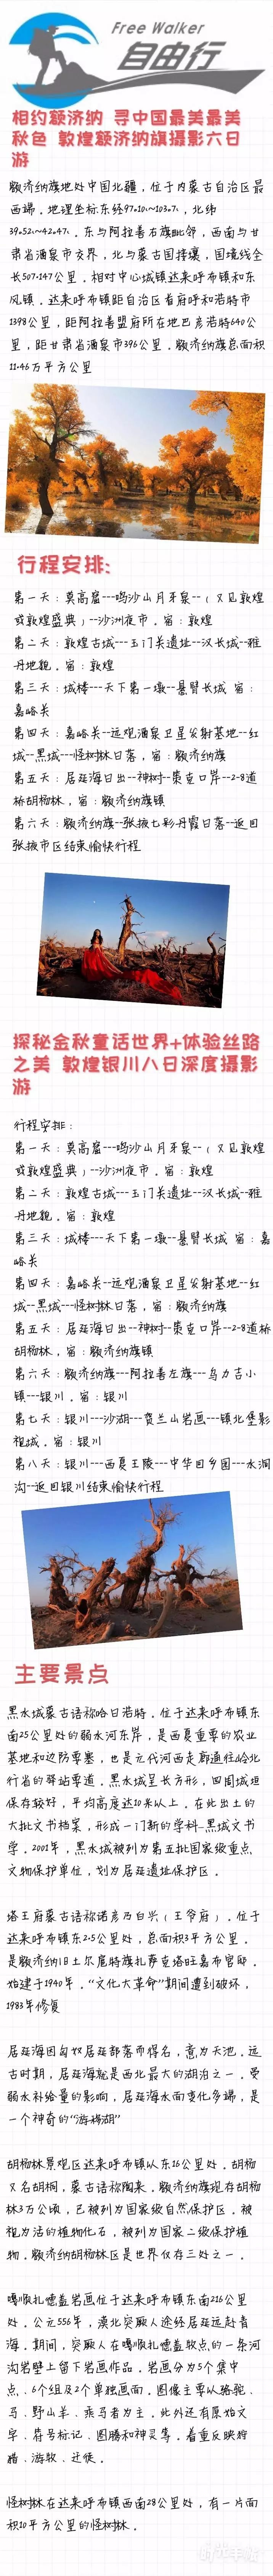 Free Walker
自由行
相约额济纳 寻中国最美最美
秋色 敦煌额济纳旗摄影六日
游
额济纳旗地处中国北疆，位于内蒙古自治区最
西端。地理坐标东经97.10、~103.7、，北纬
39.52、~42.47、。东与阿拉善右旗毗邻，西南与甘
肃省酒泉市交界，北与蒙古国接壤，国境线全
长507.147公里。相对中心城镇达来呼布镇和东
风镇。达来呼布镇距自治区首府呼和浩特市
1398公里，距阿拉善盟府所在地巴彦浩特640公
里，距甘肃省酒泉市396公里。额济纳旗总面积
11.46万平方公里
行程安排:
第一天：莫高窟---鸣沙山月牙泉--（又见敦煌
或敦煌盛典）--沙洲夜市。宿：敦煌
第二天：敦煌古城---玉门关遗址--汉长城--雅
丹地貌。宿：敦煌
第三天：城楼---天下第一墩--悬臂长城 宿：
嘉峪关
第四天：嘉峪关--远观酒泉卫星发射基地--红
城--黑城---怪树林日落，宿：额济纳旗
第五天：居延海日出--神树--策克口岸--2-8道
桥胡杨林，宿：额济纳旗镇
第六天：额济纳旗--张掖七彩丹霞日落--返回
张掖市区结束愉快行程
探秘金秋童话世界+体验丝路
之美 敦煌银川八日深度摄影
游
行程安排：
第一天：莫高窟---鸣沙山月牙泉--（又见敦煌
或敦煌盛典）--沙洲夜市。宿：敦煌
第二天：敦煌古城---玉门关遗址--汉长城--雅
丹地貌。宿：敦煌
第三天：城楼---天下第一墩--悬臂长城 宿：嘉
峪关
第四天：嘉峪关--远观酒泉卫星发射基地--红
城--黑城---怪树林日落，宿：额济纳旗
第五天：居延海日出--神树--策克口岸--2-8道桥
胡杨林，宿：额济纳旗镇
第六天：额济纳旗---阿拉善左旗---乌力吉小
镇---银川。宿：银川
第七天：银川---沙湖---贺兰山岩画---镇北堡影
视城。宿：银川
第八天：银川---西夏王陵---中华回乡园---水洞
沟--返回银川结束愉快行程
主要景点
黑水城蒙古语称哈日浩特。位于达来呼布镇东
南25公里处的弱水河东岸，是西夏重要的农业
基地和边防要塞，也是元代河西走廊通往岭北
行省的驿站要道。黑水城呈长方形，四周城垣
保存较好，平均高度达10米以上。在此出土的
大批文书档案，形成一门新的学科-黑城文书
学。2001年，黑水城被列为第五批国家级重点
文物保护单位，划为居延遗址保护区。
塔王府蒙古语称诺彦乃白兴（王爷府）。位于
达来呼布镇东2.5公里处，总面积3平方公里。
是额济纳旧土尔扈特旗扎萨克塔旺嘉布官邸。
始建于1940年。“文化大革命”期间遭到破坏，
1983年修复
居延海因匈奴居延部落而得名，意为天池。远
古时期，居延海就是西北最大的湖泊之一。受
弱水补给量的影响，居延海水面变化多端，是
一个神奇的“游移湖”
胡杨林景观区达来呼布镇以东16公里处。胡杨
又名胡桐，蒙古语称陶来。额济纳旗现存胡杨
林3万公顷，已被列为国家级自然保护区。被
视为活的植物化石，被列为国家二级保护植
物。额济纳胡杨林区是世界仅存三处之一。
嘎顺扎德盖岩画位于达来呼布镇东南216公里
处。公元556年，漠北突厥人途经居延远赴青
海。期间，突厥人在嘎顺扎德盖牧点的一条河
沟岩壁上留下岩画作品。岩画分为5个集中
点、6个组及2个单独画面。图像主要以骆驼、
马、野山羊、乘马者为主。此外还有原始文
字、符号标记、图腾和神灵等。着重反映狩
猎、游牧、迁徙。
怪树林在达来呼布镇西南28公里处，有一片面
积10平方公里的怪树林。